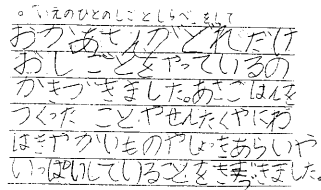 。いえのひとのしごとしらべをして
おかあさんがどれだけ
おしごとをやっているの
かきづきました。あさごはんを
つくった ことやせんたくやにわ
はきやかいものやしょっきあらいや
いっぱいしていることをきづきました。